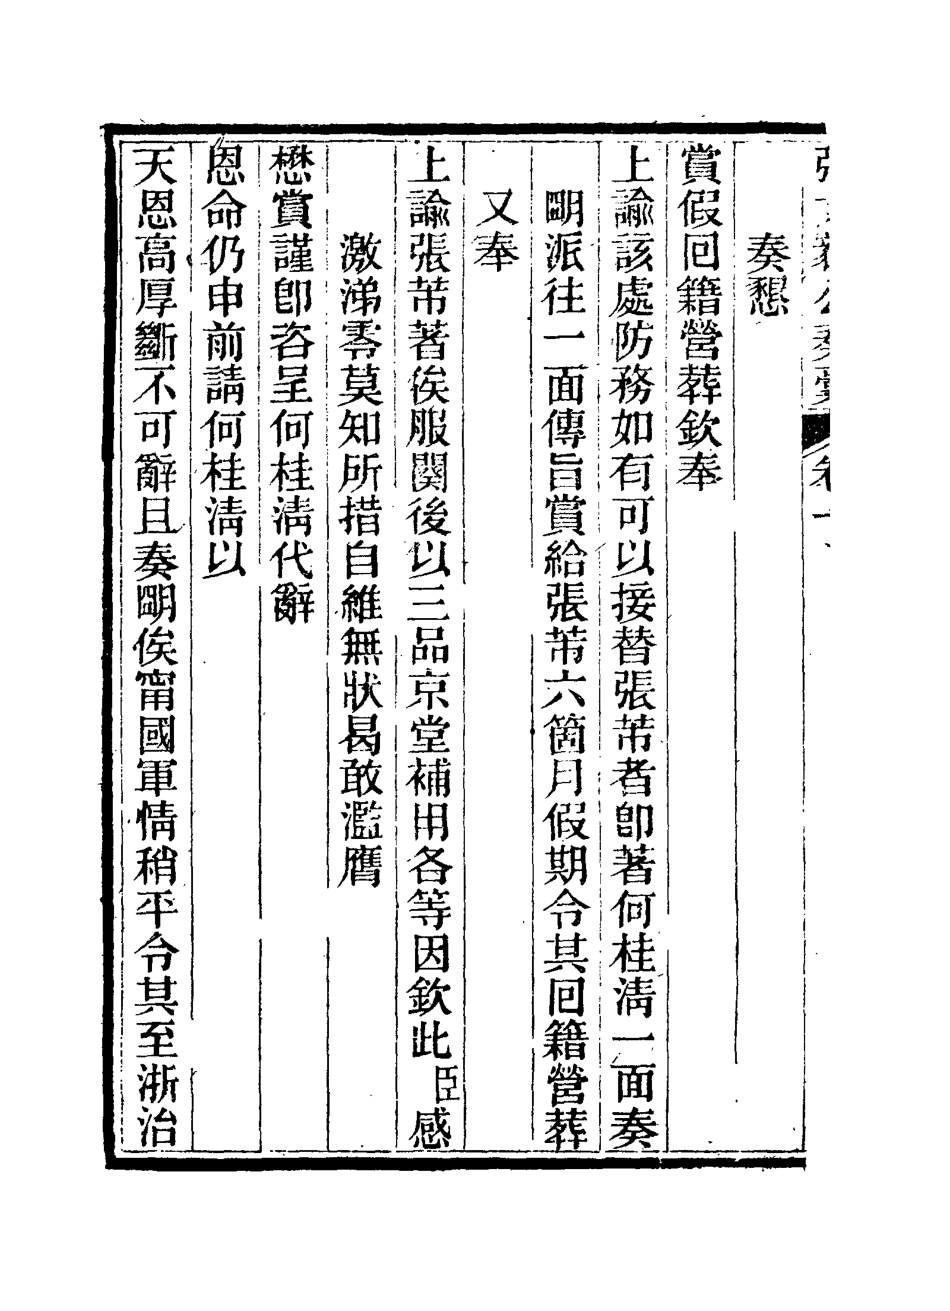 奏懇
賞假回籍營葬欽奉
上諭該處防務如有可以接替張芾者卽著何桂淸一面奏
明派往一面傳旨賞給張芾六箇月假期令其回籍營葬
又奉
上諭張芾著俟服闋後以三品京堂補用各等因欽此臣感
激涕零莫知所措自維無狀曷敢濫膺
懋賞謹卽咨呈何桂淸代辭
恩命仍申前請何桂淸以
天恩高厚斷不可辭且奏明俟甯國軍情稍平令其至浙治